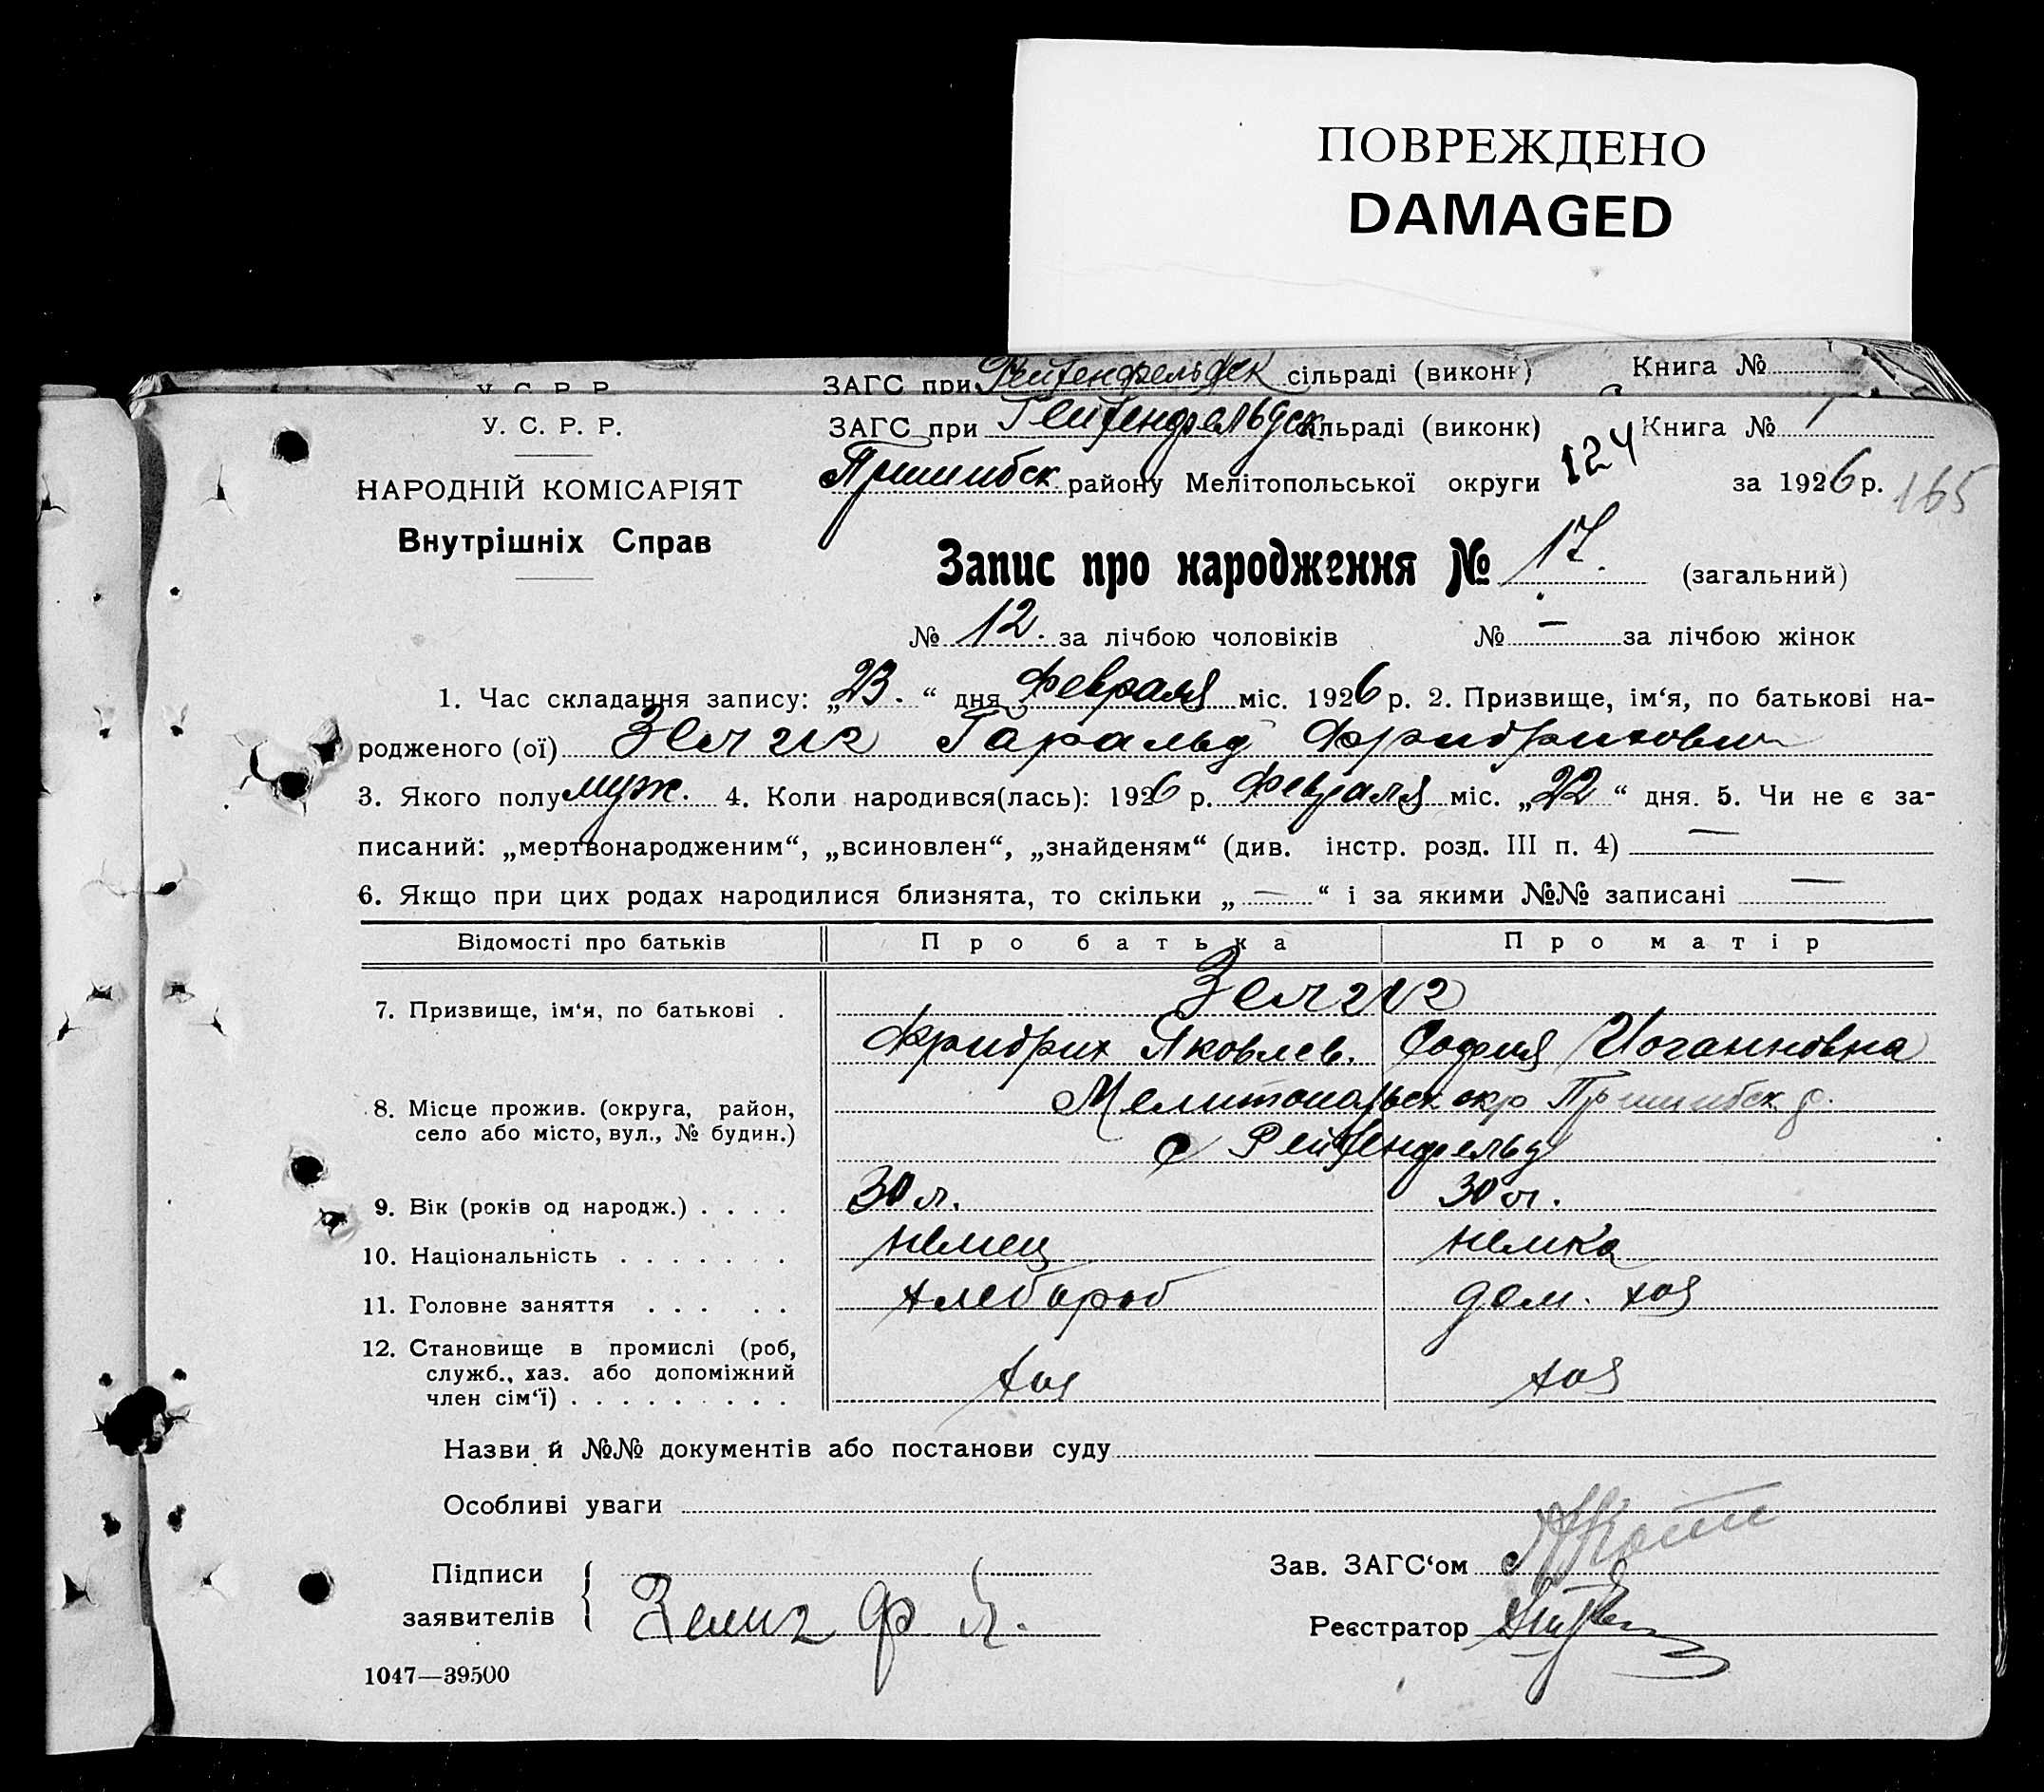 ПОВРЕЖДЕНО
DAMAGED
У. С. Р. Р. ЗАГС при Рейхенфельдск сільраді (виконк) Книга №
У. С. Р. Р. ЗАГС при Рейхенфельдск сільраді (виконк) Книга № 1
124
НАРОДНІЙ КОМІСАРІЯТ Пришибск району Мелітопольської округи за 1926 р. 165
Внутрішніх Справ
Запис про народження № 17. (загальний)
№ 12. за лічбою чоловіків № — за лічбою жінок
1. Час складання запису: „23.“ дня Февраля міс. 1926 р. 2. Призвище, ім‘я, по батькові на-
родженого (ої) Зелгиг Гаральд Фридрихович
3. Якого полу муж. 4. Коли народився(лась): 1926 р. Февраля міс. „22“ дня. 5. Чи не є за-
писаний: „мертвонародженим“, „всиновлен“, „знайденям“ (див. інстр. розд. III п. 4) —
6. Якщо при цих родах народилися близнята, то скільки „—“ і за якими №№ записані —
Відомості про батьків Про батька Про матір
Зелгиг
7. Призвище, ім‘я, по батькові .
Фридрих Яковлев. София Иоганновна
8. Місце прожив. (округа, район, Мелитопольск окр Пришибск р.
село або місто, вул., № будин.) с Рейхенфельд
9. Вік (років од народж.) . . . . 30 л. 30 л.
10. Національність . . . . . . . немец немка
11. Головне заняття . . . . . хлебороб дом. хоз
12. Становище в промислі (роб,
служб., хаз. або допоміжний хоз хоз
член сім‘ї) . . . . . . . . .
Назви й №№ документів або постанови суду
Особливі уваги
Підписи Зав. ЗАГС‘ом
заявителів Зелиг Ф Я. Реєстратор
1047—39500